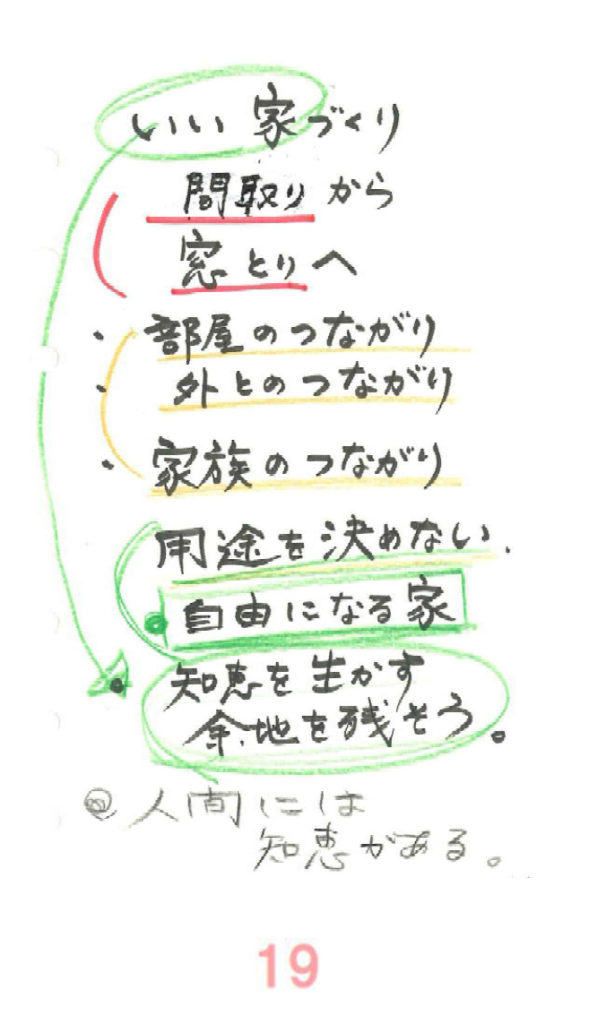 いい家づくり
間取りから
窓とりへ
・部屋のつながり
・外とのつながり
・家族のつながり
用途を決めない.
自由になる家
・知恵を生かす
余地を残そう。
◎人間には
知恵がある。
19